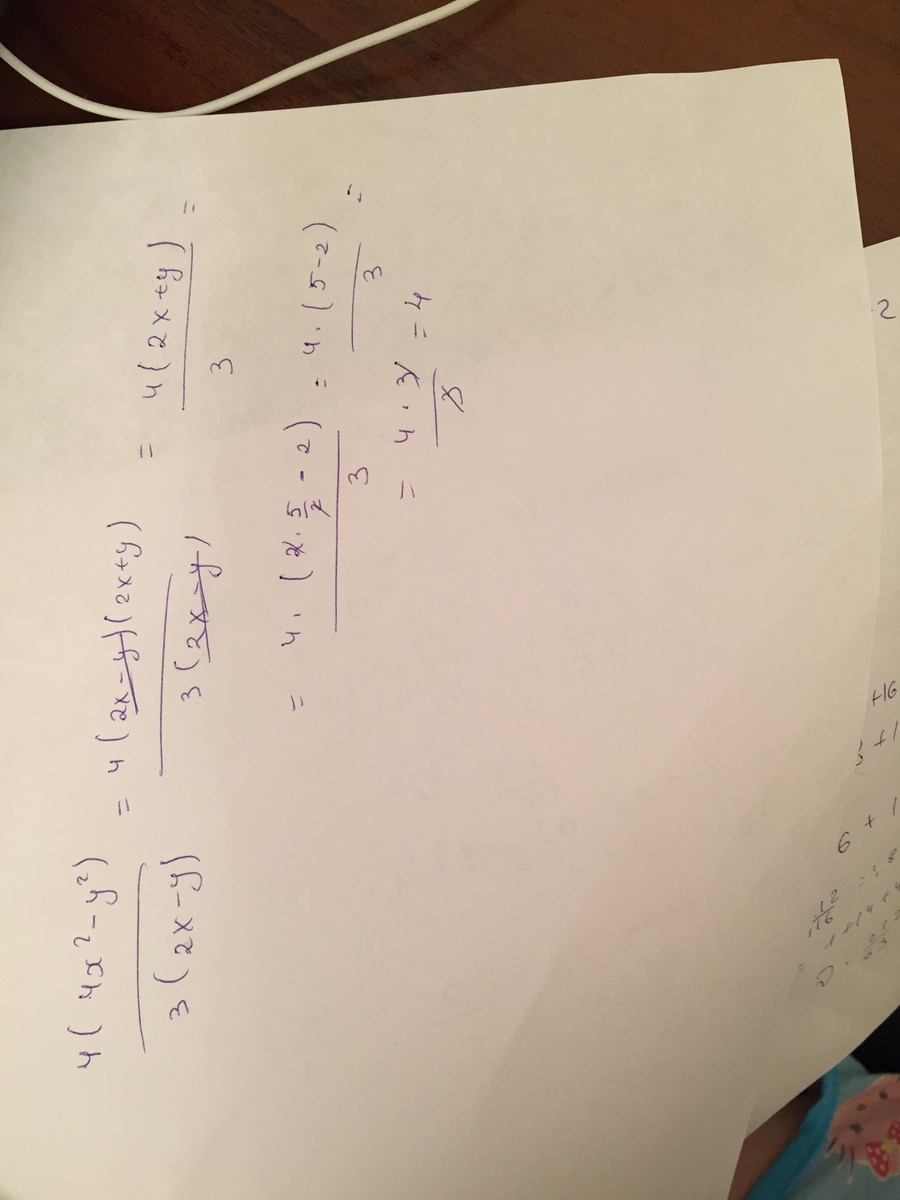 4(4x²-y²)/3(2x-y) = 4(2x-y)(2x+y)/3(2x-y) = 4(2x+y)/3 =
= 4·(2·5/2-2)/3 = 4·(5-2)/3 =
= 4·3/3 = 4
2
+16
+1
6 + 1